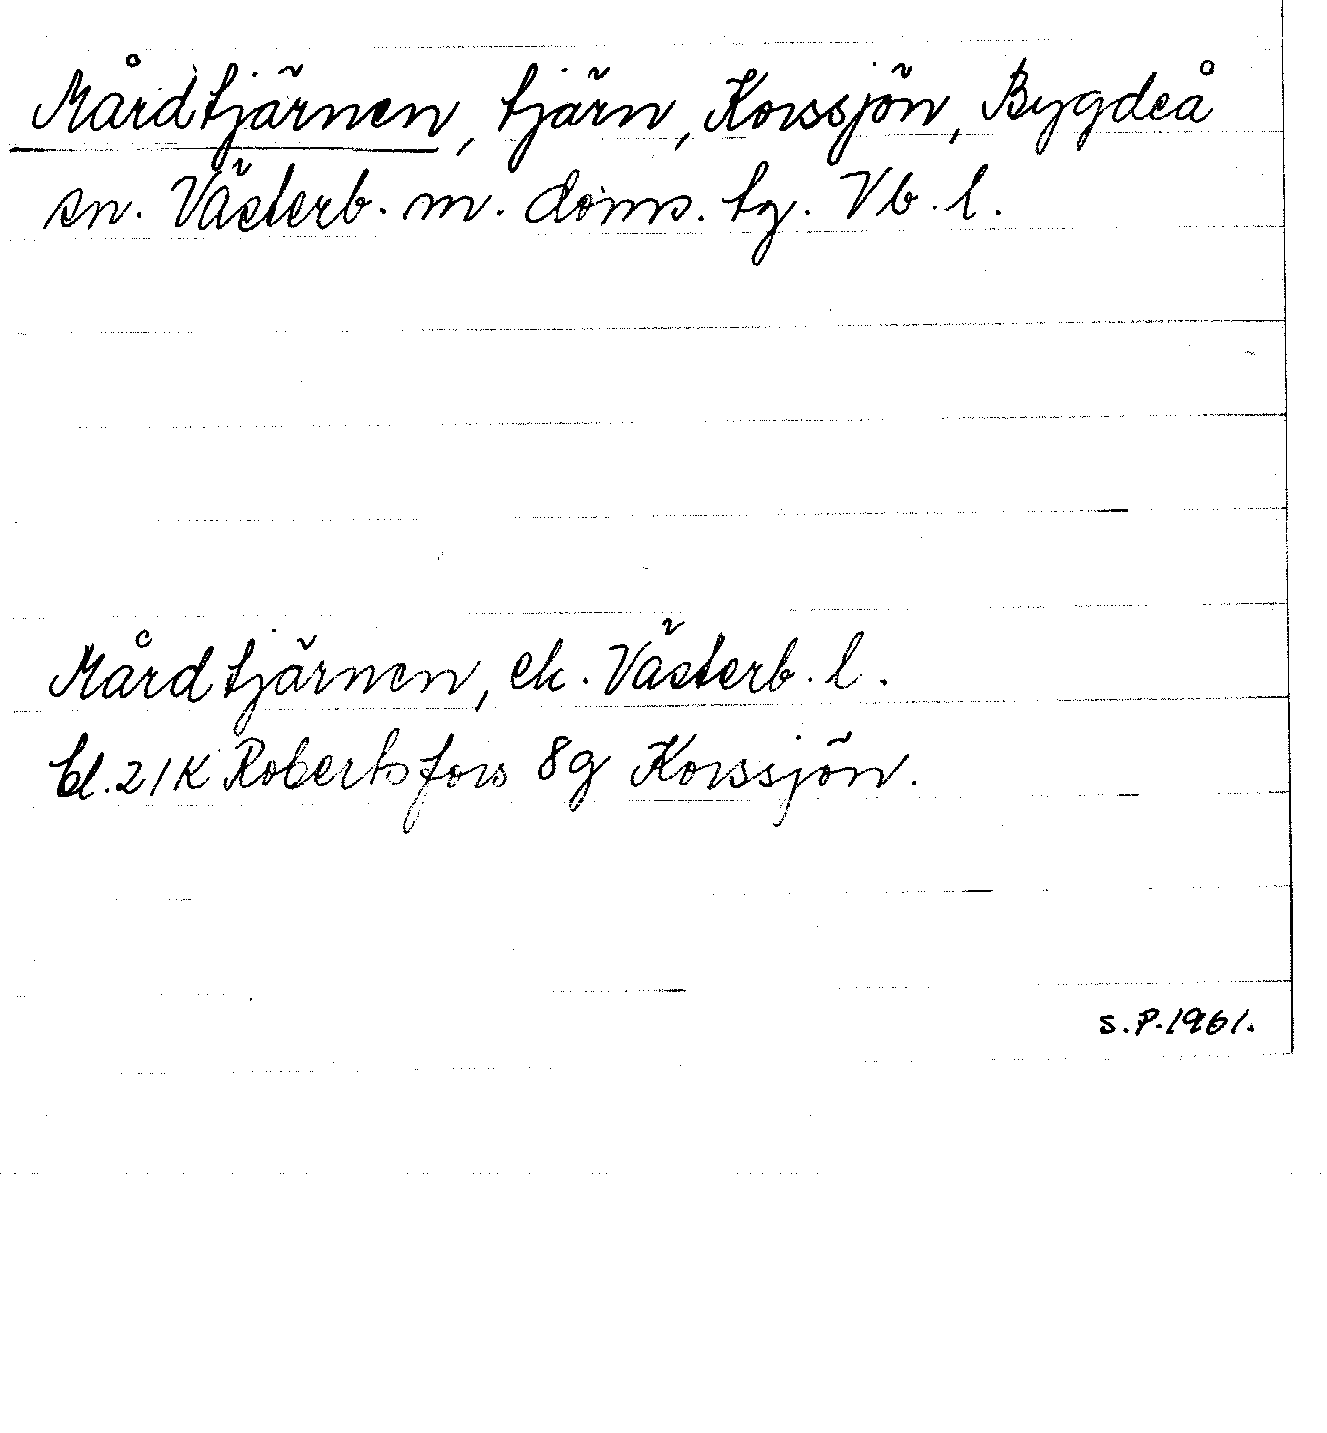 Mårdtjärnen, tjärn, Korssjön, Bygdeå
sn. Västerb. m. doms. tg. Vb. l.
Mårdtjärnen, ek. Västerb. l.
bl. 21K Robertsfors 8g Korssjön.
S.P. 1961.